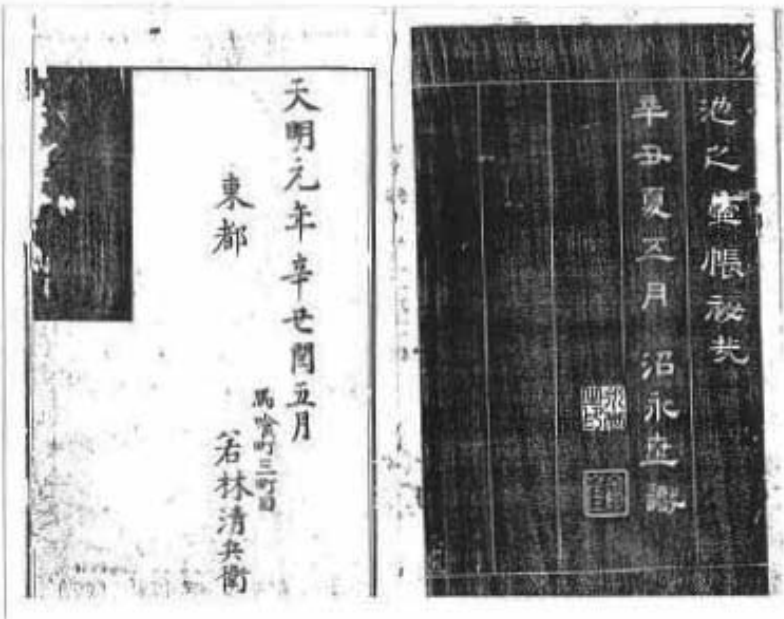 池之帳祕
辛丑夏五月 沼永
天明元年辛丑閏五月
東都
馬喰町三町目
若林清兵衛